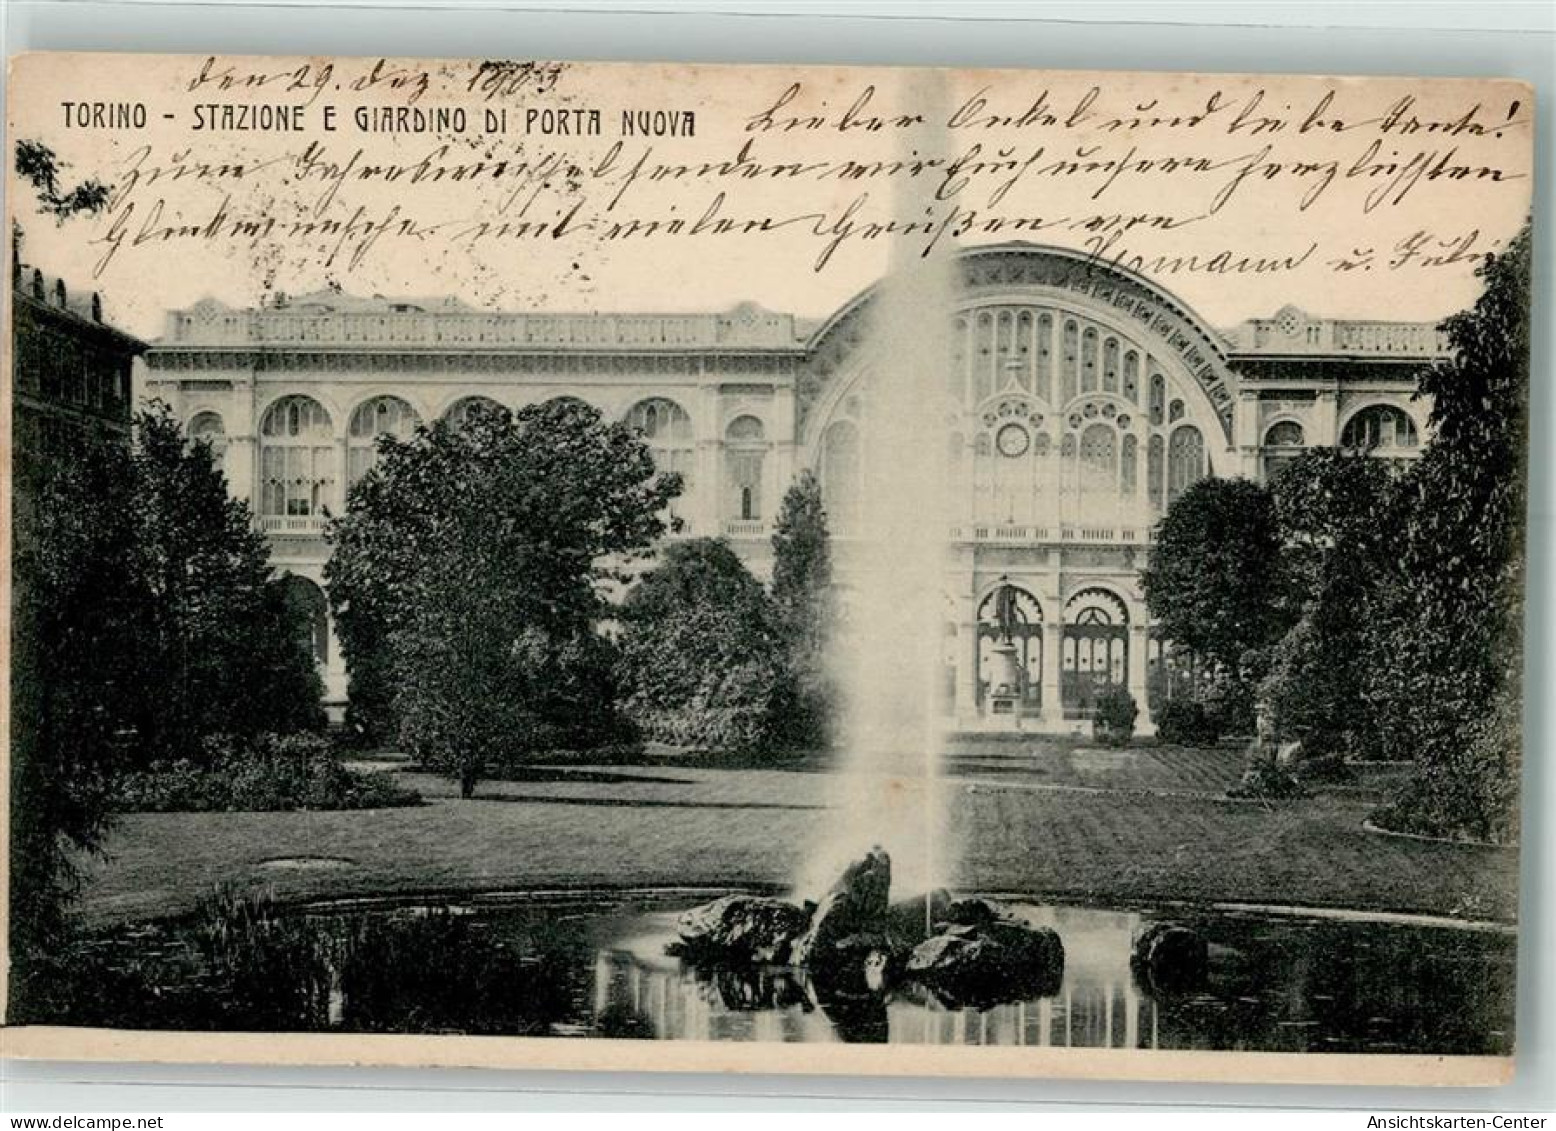 den 29. Dez. 1903
TORINO - STAZIONE E GIARDINO DI PORTA NUOVA
Lieber Onkel und liebe Tante!
Zum Jahreswechsel senden wir Euch unsere herzlichsten
Glückwünsche mit vielen Grüßen von
Hermann u.
akpool.de
Ansichtskarten-Center